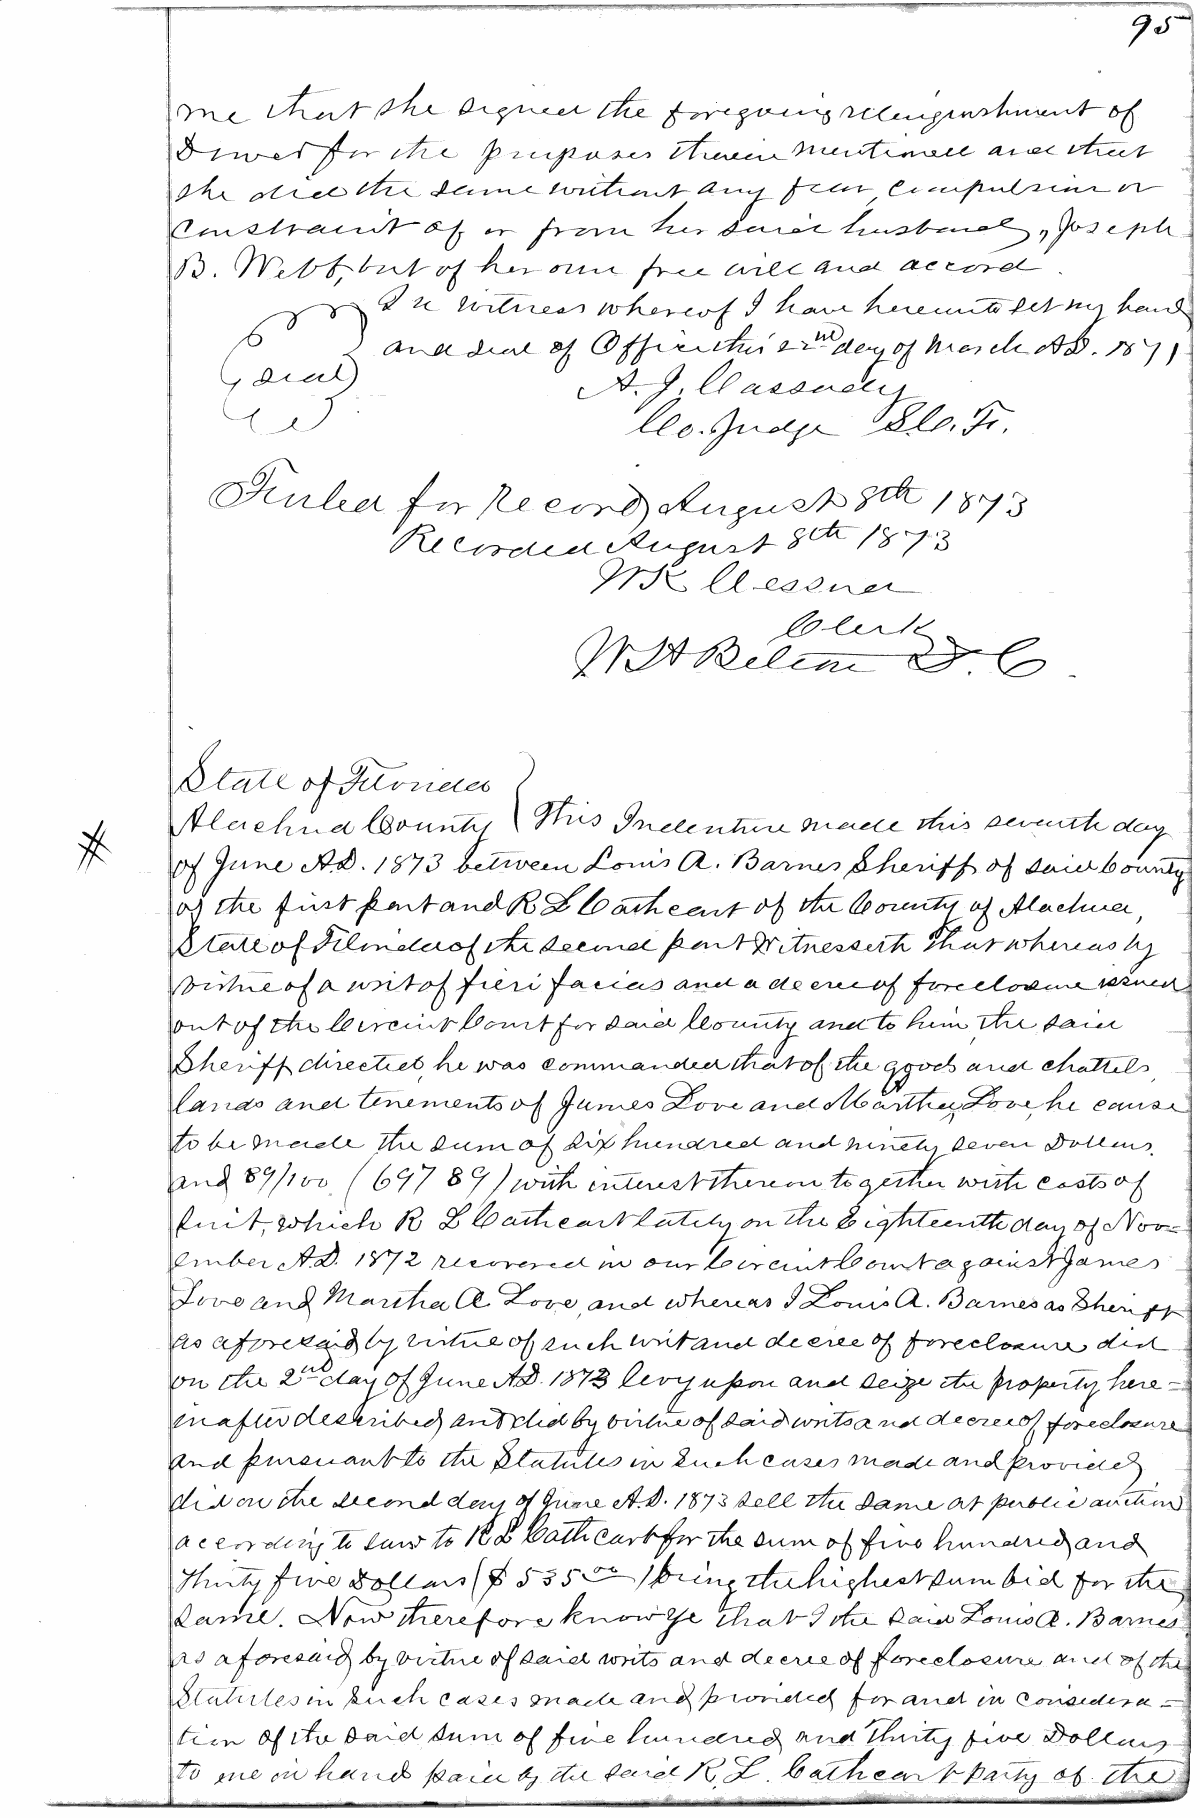 95
me that she signed the foregoing relinquishment of
Dower for the purposes therein mentioned and that
she did the same without any fear, compulsion or
constraint of or from her said husband, Joseph
B. Webb, but of her own free will and accord.
In witness whereof I have hereunto set my hand
and seal of Office this 22nd day of March A.D. 1871
(seal)
A. J. Cassady
Co. Judge S.Co. Fr.
Finled for Record August 8th 1873
Recorded August 8th 1873
W K Cessna
Clerk
W H Belton D. C.
State of Florida
Alachua County } This Indenture made this seventh day
#
of June A.D. 1873 between Louis A. Barnes Sheriff of said County
of the first part and R L Cathcart of the County of Alachua,
State of Florida of the second part Witnesseth That whereas by
virtue of a writ of fieri facias and a decree of foreclosure issued
out of the Circuit Court for said County and to him, the said
Sheriff directed, he was commanded that of the goods and chattels,
lands and tenements of James Love and Martha Love, he cause
to be made the sum of six hundred and ninety seven Dollars,
and 89/100 (697 89) with interest thereon together with costs of
suit, which R L Cathcart lately on the Eighteenth day of Nov=
ember A.D. 1872 recovered in our Circuit Court against James
Love and Martha A Love, and whereas I Louis A. Barnes as Sheriff
as aforesaid by virtue of such writ and decree of foreclosure did
on the 2nd day of June A.D. 1873 levy upon and seize the property here=
inafter described and did by virtue of said writs and decree of foreclosure
and pursuant to the Statutes in such cases made and provided
did on the second day of June A.D. 1873 sell the same at public auction
according to law to R L Cathcart for the sum of five hundred and
thirty five Dollars ($ 535 00) being the highest sum bid for the
same. Now therefore know ye that I the said Louis A. Barnes
as aforesaid by virtue of said writs and decree of foreclosure and of the
Statutes in such cases made and provided for and in considera=
tion of the said sum of five hundred and thirty five Dollars
to me in hand paid by the said R. L. Cathcart party of the